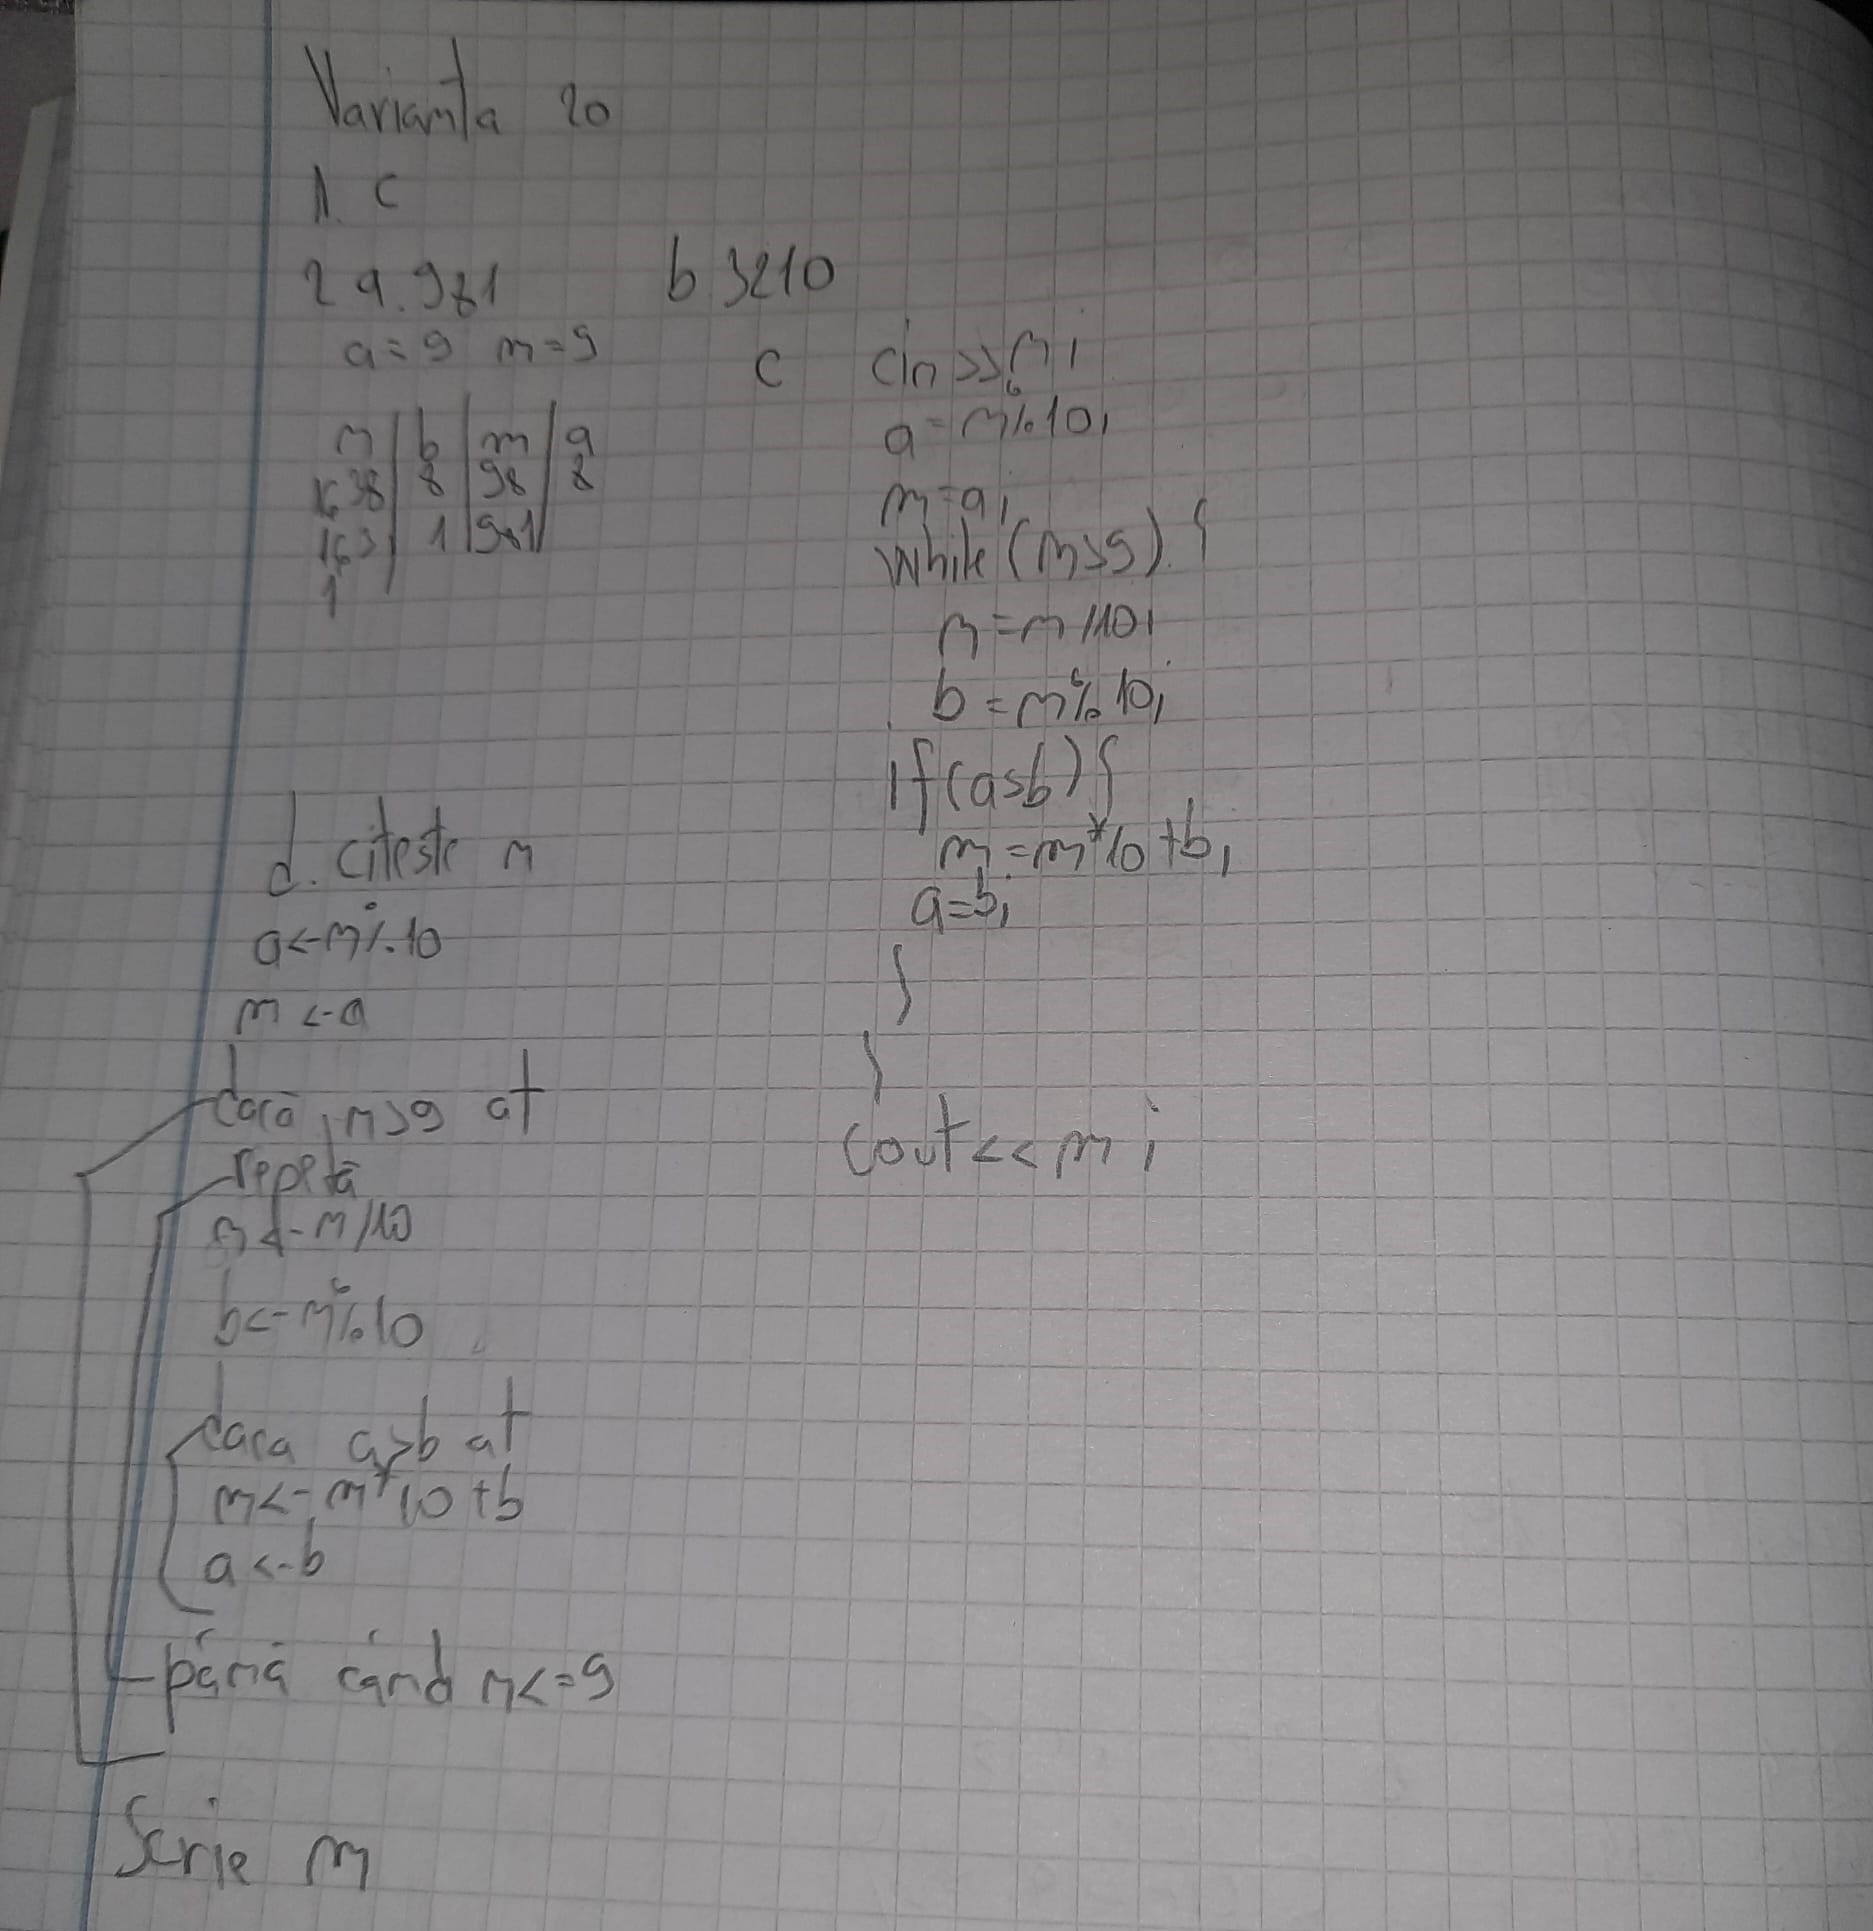 Varianta 20
1. c
2 a. 981
b 3210
a=9 m=9
n b m a
1638 8 98 8
163 1 981
1
c cin>>n;
a=n%10;
m=a;
while(n>9) {
n=n/10;
b=n%10;
if(a>b){
m=m*10+b;
a=b;
}
}
cout<<m;
d. citeste n
a<-n%10
m<-a
dacă n>9 at
repetă
n<-n/10
b<-n%10
daca a>b at
m<-m*10+b
a<-b
până când n<=9
Scrie m